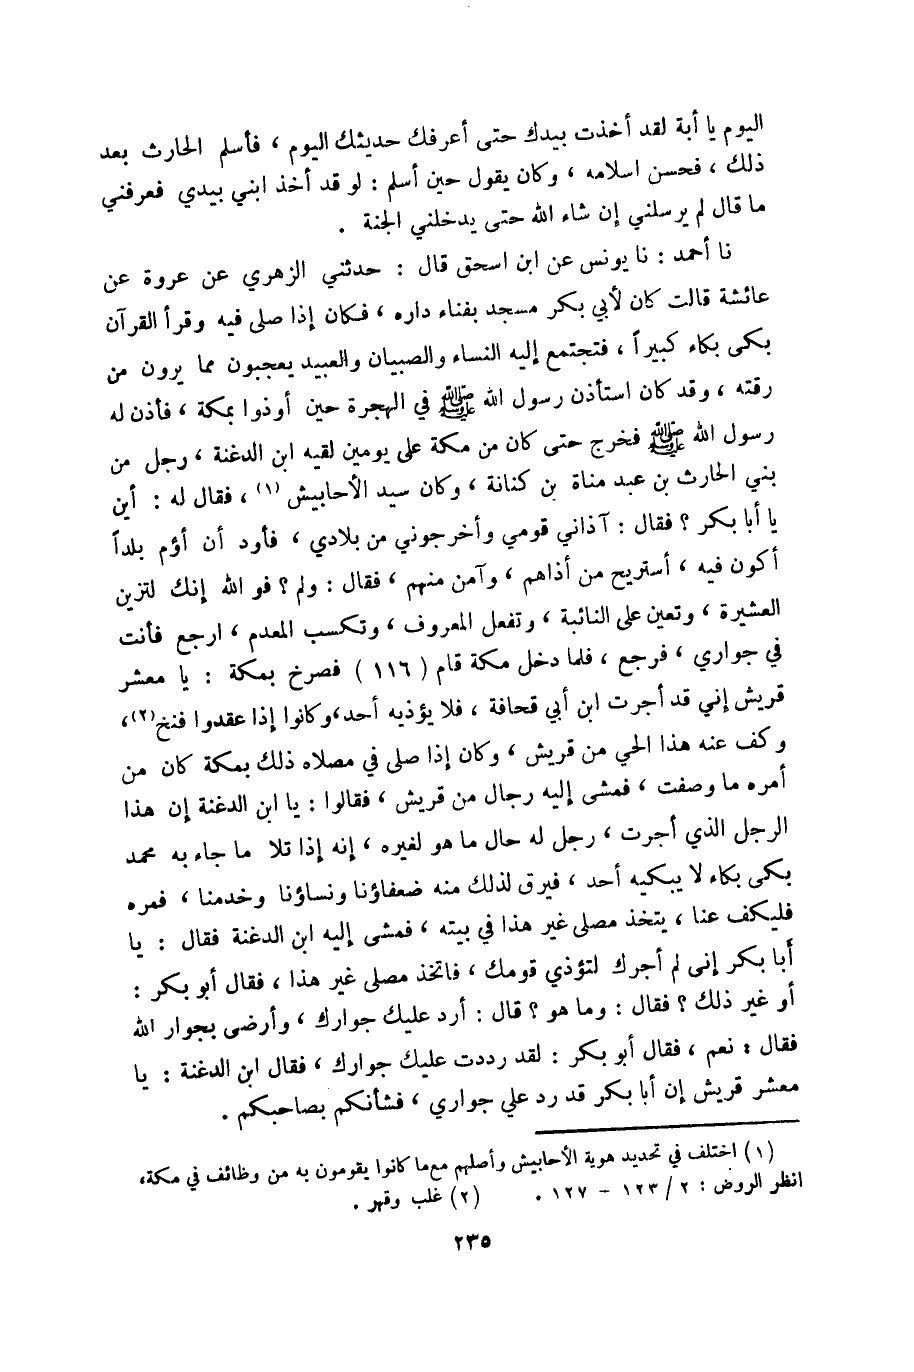 اليوم يا أبة لقد أخذت بيدك حتى أعرفك حديثك اليوم ، فأسلم الحارث بعد
ذلك ، فحسن اسلامه ، وكان يقول حين أسلم : لو قد أخذ ابني بيدي فعرفني
ما قال لم يرسلني إن شاء الله حتى يدخلني الجنة .
نا أحمد : نا يونس عن ابن اسحق قال : حدثني الزهري عن عروة عن
عائشة قالت كان لأبي بكر مسجد بفناء داره ، فكان إذا صلى فيه وقرأ القرآن
بكى بكاء كبيراً ، فتجتمع إليه النساء والصبيان والعبيد يعجبون مما يرون من
رقته ، وقد كان استأذن رسول الله ﷺ في الهجرة حين أوذوا بمكة ، فأذن له
رسول الله ﷺ فخرج حتى كان من مكة على يومين لقيه ابن الدغنة ، رجل من
بني الحارث بن عبد مناة بن كنانة ، وكان سيد الأحابيش (١) ، فقال له : أين
يا أبا بكر ؟ فقال : آذاني قومي وأخرجوني من بلادي ، فأود أن أؤم بلداً
أكون فيه ، أستريح من أذاهم ، وآمن منهم ، فقال : ولم ؟ فو الله إنك لتزين
العشيرة ، وتعين على النائبة ، وتفعل المعروف ، وتكسب المعدم ، ارجع فأنت
في جواري ، فرجع ، فلما دخل مكة قام ( ١١٦ ) فصرخ بمكة : يا معشر
قريش إني قد أجرت ابن أبي قحافة ، فلا يؤذيه أحد،وكانوا إذا عقدوا فنخ(٢)،
وكف عنه هذا الحي من قريش ، وكان إذا صلى في مصلاه ذلك بمكة كان من
أمره ما وصفت ، فمشى إليه رجال من قريش ، فقالوا : يا ابن الدغنة إن هذا
الرجل الذي أجرت ، رجل له حال ما هو لغيره ، إنه إذا تلا ما جاء به محمد
بكى بكاء لا يبكيه أحد ، فيرق لذلك منه ضعفاؤنا ونساؤنا وخدمنا ، فمره
فليكف عنا ، يتخذ مصلى غير هذا في بيته ، فمشى إليه ابن الدغنة فقال : يا
أبا بكر إنى لم أجرك لتؤذي قومك ، فاتخذ مصلى غير هذا ، فقال أبو بكر :
أو غير ذلك ؟ فقال : وما هو ؟ قال : أرد عليك جوارك ، وأرضى بجوار الله
فقال : نعم ، فقال أبو بكر : لقد رددت عليك جوارك ، فقال ابن الدغنة : يا
معشر قريش إن أبا بكر قد رد علي جواري ، فشأنكم بصاحبكم .
(١) اختلف في تحديد هوية الأحابيش وأصلهم مع ما كانوا يقومون به من وظائف في مكة،
انظر الروض : ٢ / ١٢٣ - ١٢٧ . (٢) غلب وقهر .
٢٣٥